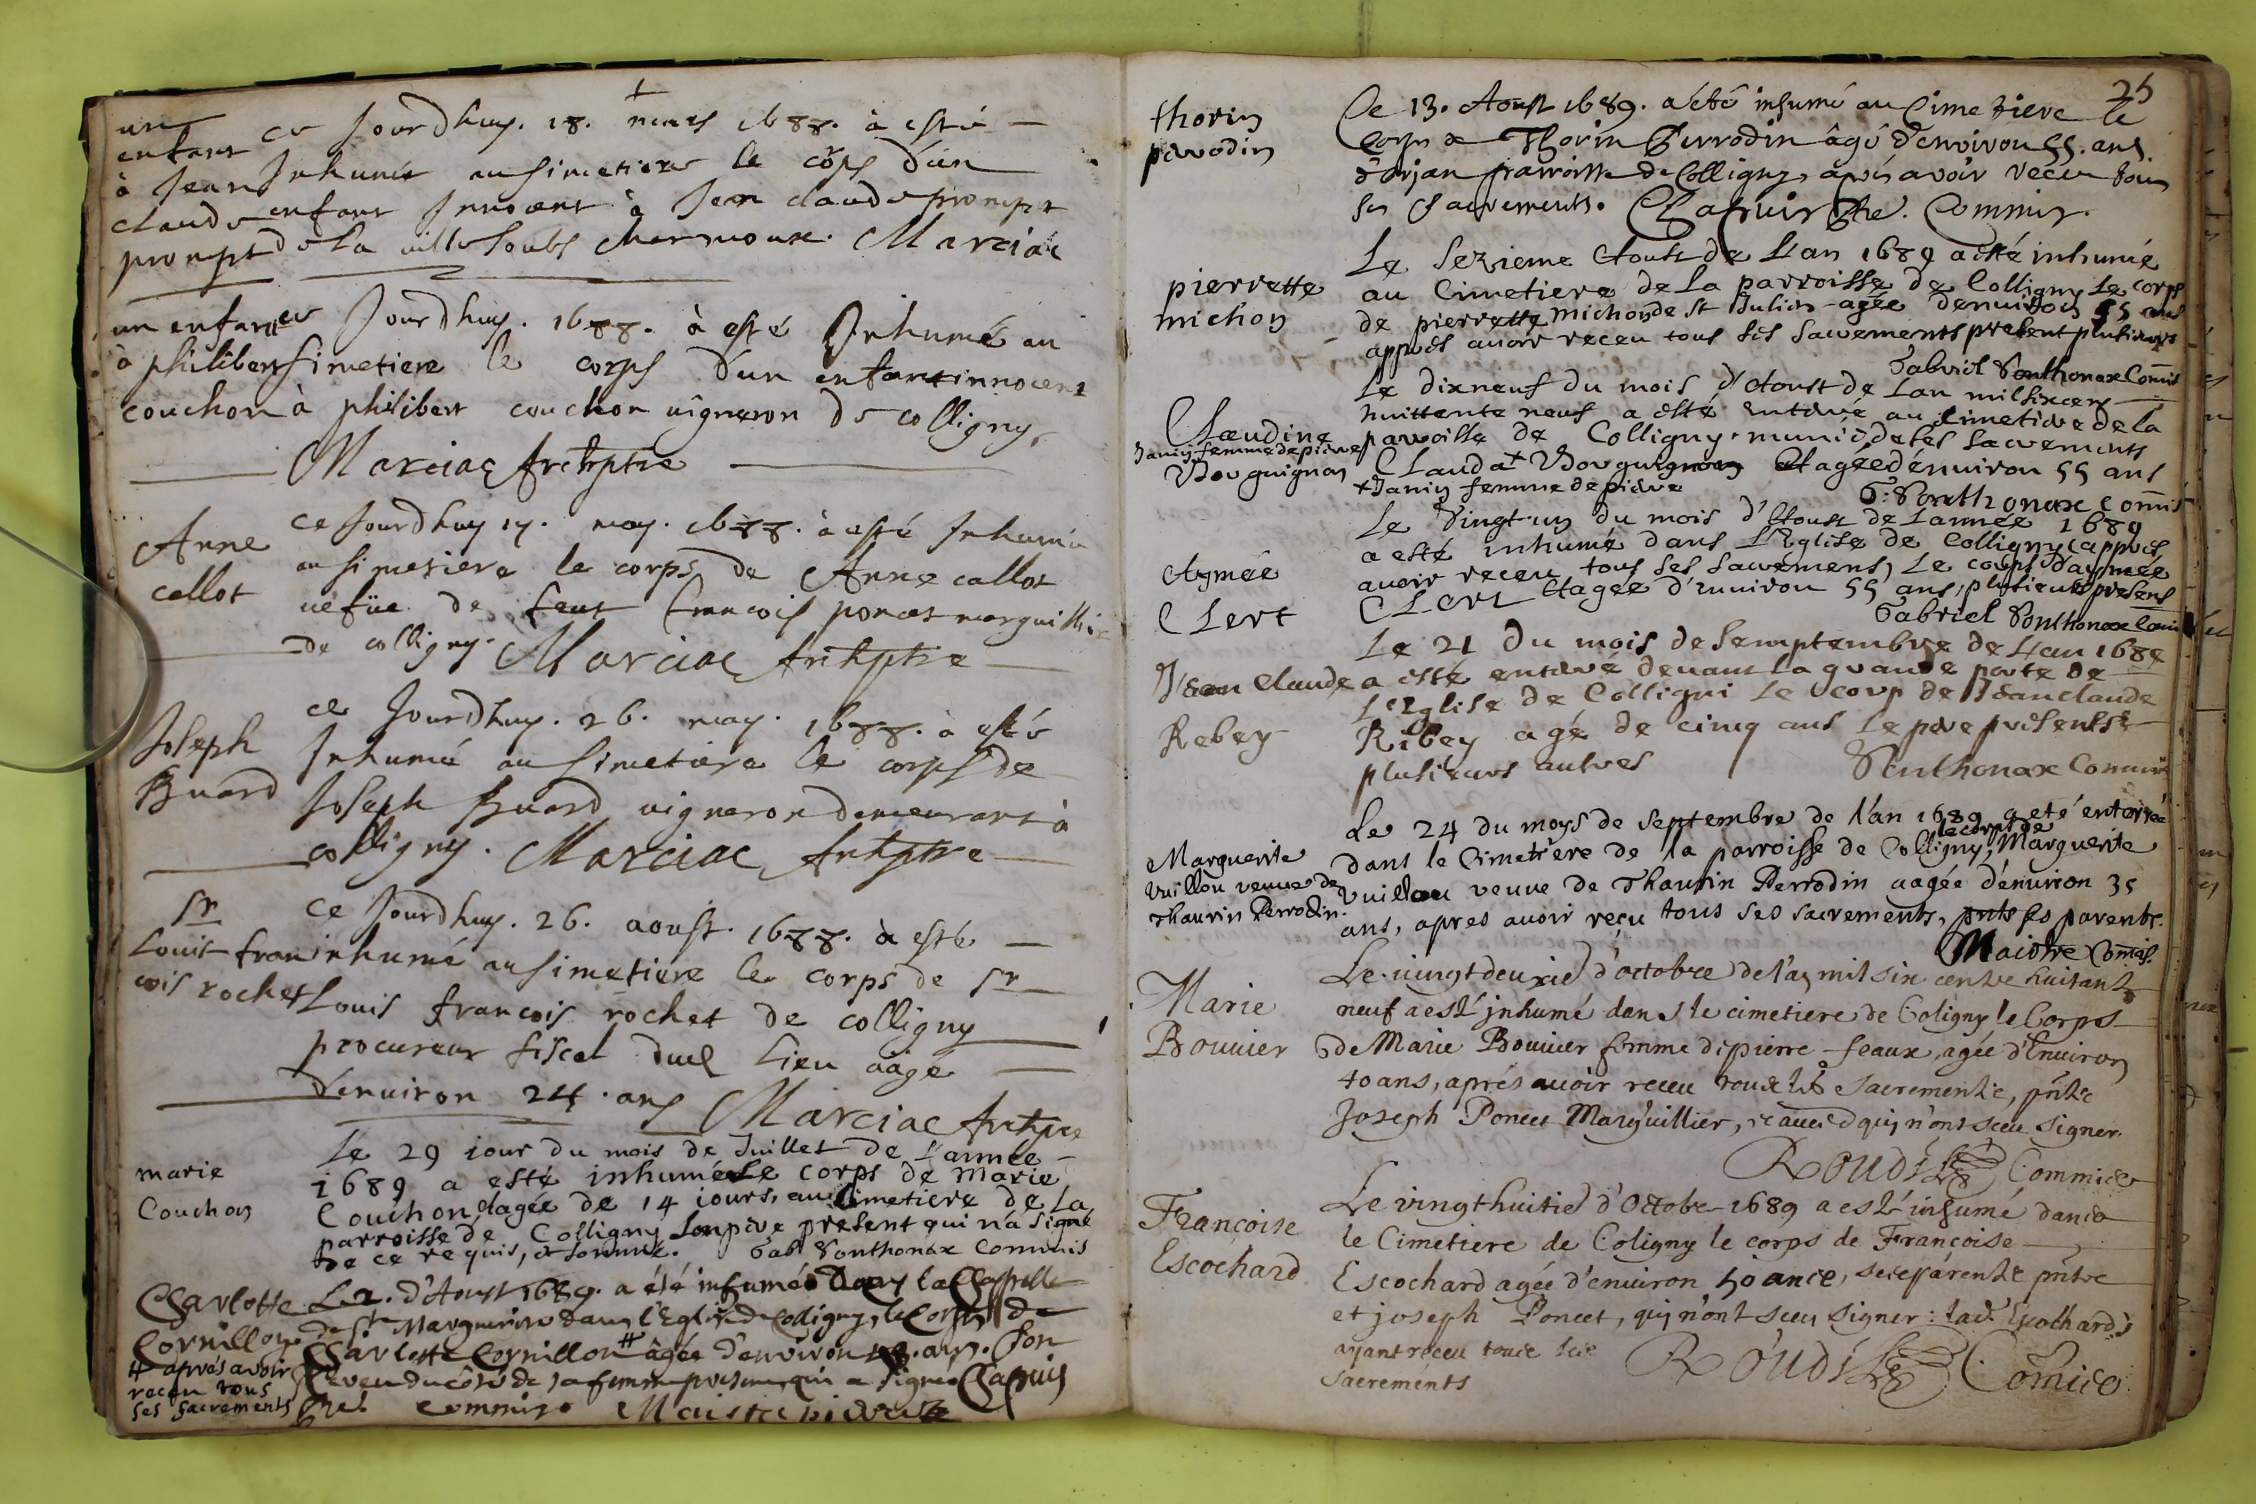 un
enfant
à Jean
claude
prompt
ce Jourdhuy. 18. mars 1688. à esté
Inhumée au simetiere le corps d'un
enfant Innocent à Jean claude prompt
de la ville soubs charmoux. Marciac
un enfant
à philibert
couchon
ce Jourdhuy. 1688. à esté Inhumé au
simetiere le corps d'un enfant innocent
à philibert couchon vigneron de colligny
Marciac Archptre
Anne
callot
ce Jourdhuy 17. may. 1688. à esté Inhumée
au simetiere le corps de Anne callot
vefue de feut francois poncet marguillie
de colligny. Marciac Archptre
Joseph
Buard
ce Jourdhuy. 26. may. 1688. à esté
Inhumé au simetiere le corps de
Joseph Buard vigneron demeurant à
colligny. Marciac Archptre
Sr
Louis fran
cois rochet
Ce Jourdhuy. 26. aoust. 1688. à esté
inhumé au simetiere le corps de Sr
Louis françois rochet de colligny
procureur fiscal dud Lieu aàgé
denuiron 24. ans Marciac Archptre
marie
Couchon
Le 29 iour du mois de Juillet de L'année
1689 a esté inhumé Le corps de Marie
Couchon dagée de 14 iours, au Cimetiere de La
parroisse de Colligny son pere present qui n'a signé
de ce requis, et sommé. Gab Sonthonax Commis
Charlotte
Cornillon
# aprés avoir
receu tous
ses sacrements
Le 2. d'Aoust 1689. a été inhumée Dans la Chappelle
de Ste Marguerite dans l'Eglise de Colligny, le Corps de
Charlotte Cornillon # âgée d'environ ans. son
neveu du côté de sa femme present qui a signé Chapuis
Pre. Commis. Maistre pierre
25
thorin
perrodin
Ce 13. Aoust 1689. a été inhumé au Cimetiere le
Corps de Thorin Perrodin âgé d'environ 55. ans.
d'orjan parroisse de Colligny, aprés avoir receu tous
ses Sacrements. Chapuis Pre. Commis.
pierrette
michon
Le Sezieme Aoust de L'an 1689 a esté inhumé
au Cimetiere de La parroisse de Colligny Le corps
de pierrette michon de St Julien agée denuiron 55 ans
apprés auoir receu tous ses sacrements present plusieurs
Gabriel Sonthonax Commis
Claudine
Janin femme de pierre
Bourguignon
Le dixneuf du mois d'Aoust de Lan mil sixcens
huittente neuf a esté enterré au cimetiere de la
parroisse de Colligny munie de ses sacrements
Clauda + Bourguignon Et agée dénuiron 55 ans
+ Janin femme de pierre
G: Sonthonax Commis
Aymée
Clert
Le Vingt-un du mois d'Aoust de Lannée 1689
a esté inhumé dans L'Eglise de Colligny (apprés
auoir receu tous ses sacremens) Le corps d'aymée
Clert Et agée d'enuiron 55 ans, plusieurs presens
Gabriel Sonthonax Comis
Jean Claude
Rebey
Le 21 du mois de Semptembre de L'an 1689
a esté enterré deuant La grande porte de
L'Eglise de Colligni Le corp de Jean claude
Ribey agé de cinq ans Le pere présent &
plusieurs autres Sonthonax Commis
Marguerite
Vuillou veuue de
Thaurin Perrodin.
Le 24 du moys de Septembre de l'an 1689 a eté enterrée
dans le Cimetiere de la parroisse de Colligny, le corps de Marguerite
Vuillou veuue de Thaurin Perrodin aagée d'enuiron 35
ans, apres auoir reçu tous ses sacrements, pnts ses parents.
Maistre Comis.
Marie
Bouuier
Le vingtdeuxie d'octobre de l'an mil six cents huitante
neuf a esté jnhumé dans le cimetiere de Coligny le Corps
de Marie Bouuier femme de pierre feaux, agée d'Enuiron
40 ans, aprés auoir receu tous les Sacrements, pnts
Joseph Poncet Marguillier, et aued qui n'ont sceu signer.
Roudil Commis
Françoise
Escochard
Le vingthuitie d'Octobre 1689 a esté inhumé dans
le Cimetiere de Coligny le corps de Françoise
Escochard agée d'enuiron 50 ans, ses parents pnts
et joseph Poncet, qui n'ont sceu signer: lad. Escochard
ayant receu tous ses
Sacrements
Roudil Comis.